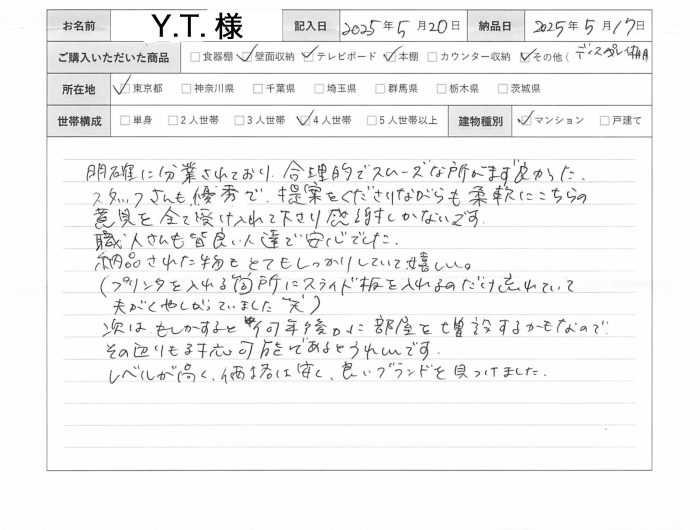 お名前 Y.T. 様 記入日 2025年5月20日 納品日 2025年5月17日
ご購入いただいた商品 □食器棚 ☑壁面収納 ☑テレビボード ☑本棚 □カウンター収納 ☑その他(ディスプレイ棚
所在地 ☑東京都 □神奈川県 □千葉県 □埼玉県 □群馬県 □栃木県 □茨城県
世帯構成 □単身 □2人世帯 □3人世帯 ☑4人世帯 □5人世帯以上 建物種別 ☑マンション □戸建て
明確に分業されており、合理的でスムーズな所がまず良かった。
スタッフさんも優秀で、提案をくださりながらも柔軟にこちらの
意見を全て受け入れて下さり感謝しかないです。
職人さんも皆良い人達で安心でした。
納品された物もとてもしっかりしていて嬉しい。
(プリンタを入れる箇所にスライド板を入れるのだけ忘れていて
夫がくやしがっていました 笑)
次はもしかすると 何年後かに部屋を増設するかもなので
その辺りも対応可能であるとうれしいです。
レベルが高く、価格は安く、良いブランドを見つけました。